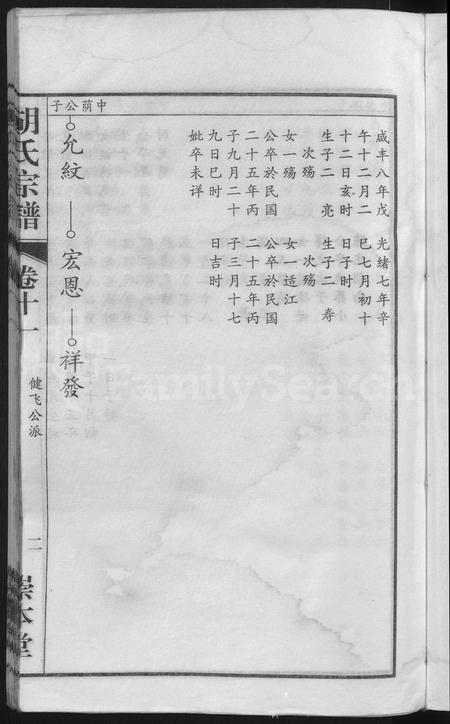 咸丰八年戊
午十二月二
十二日亥时
生子二 亮
次殇
女一殇
公卒於民国
二十五年丙
子九月二十
九日巳时
妣卒未详
光绪七年辛
巳七月初十
日子时
生子二 寿
次殇
女一适江
公卒於民国
二十五年丙
子三月十七
日吉时
中荫公子
允紋 宏恩 祥發
胡氏宗譜 卷十一
健飞公派
二
崇本堂
FamilySearch